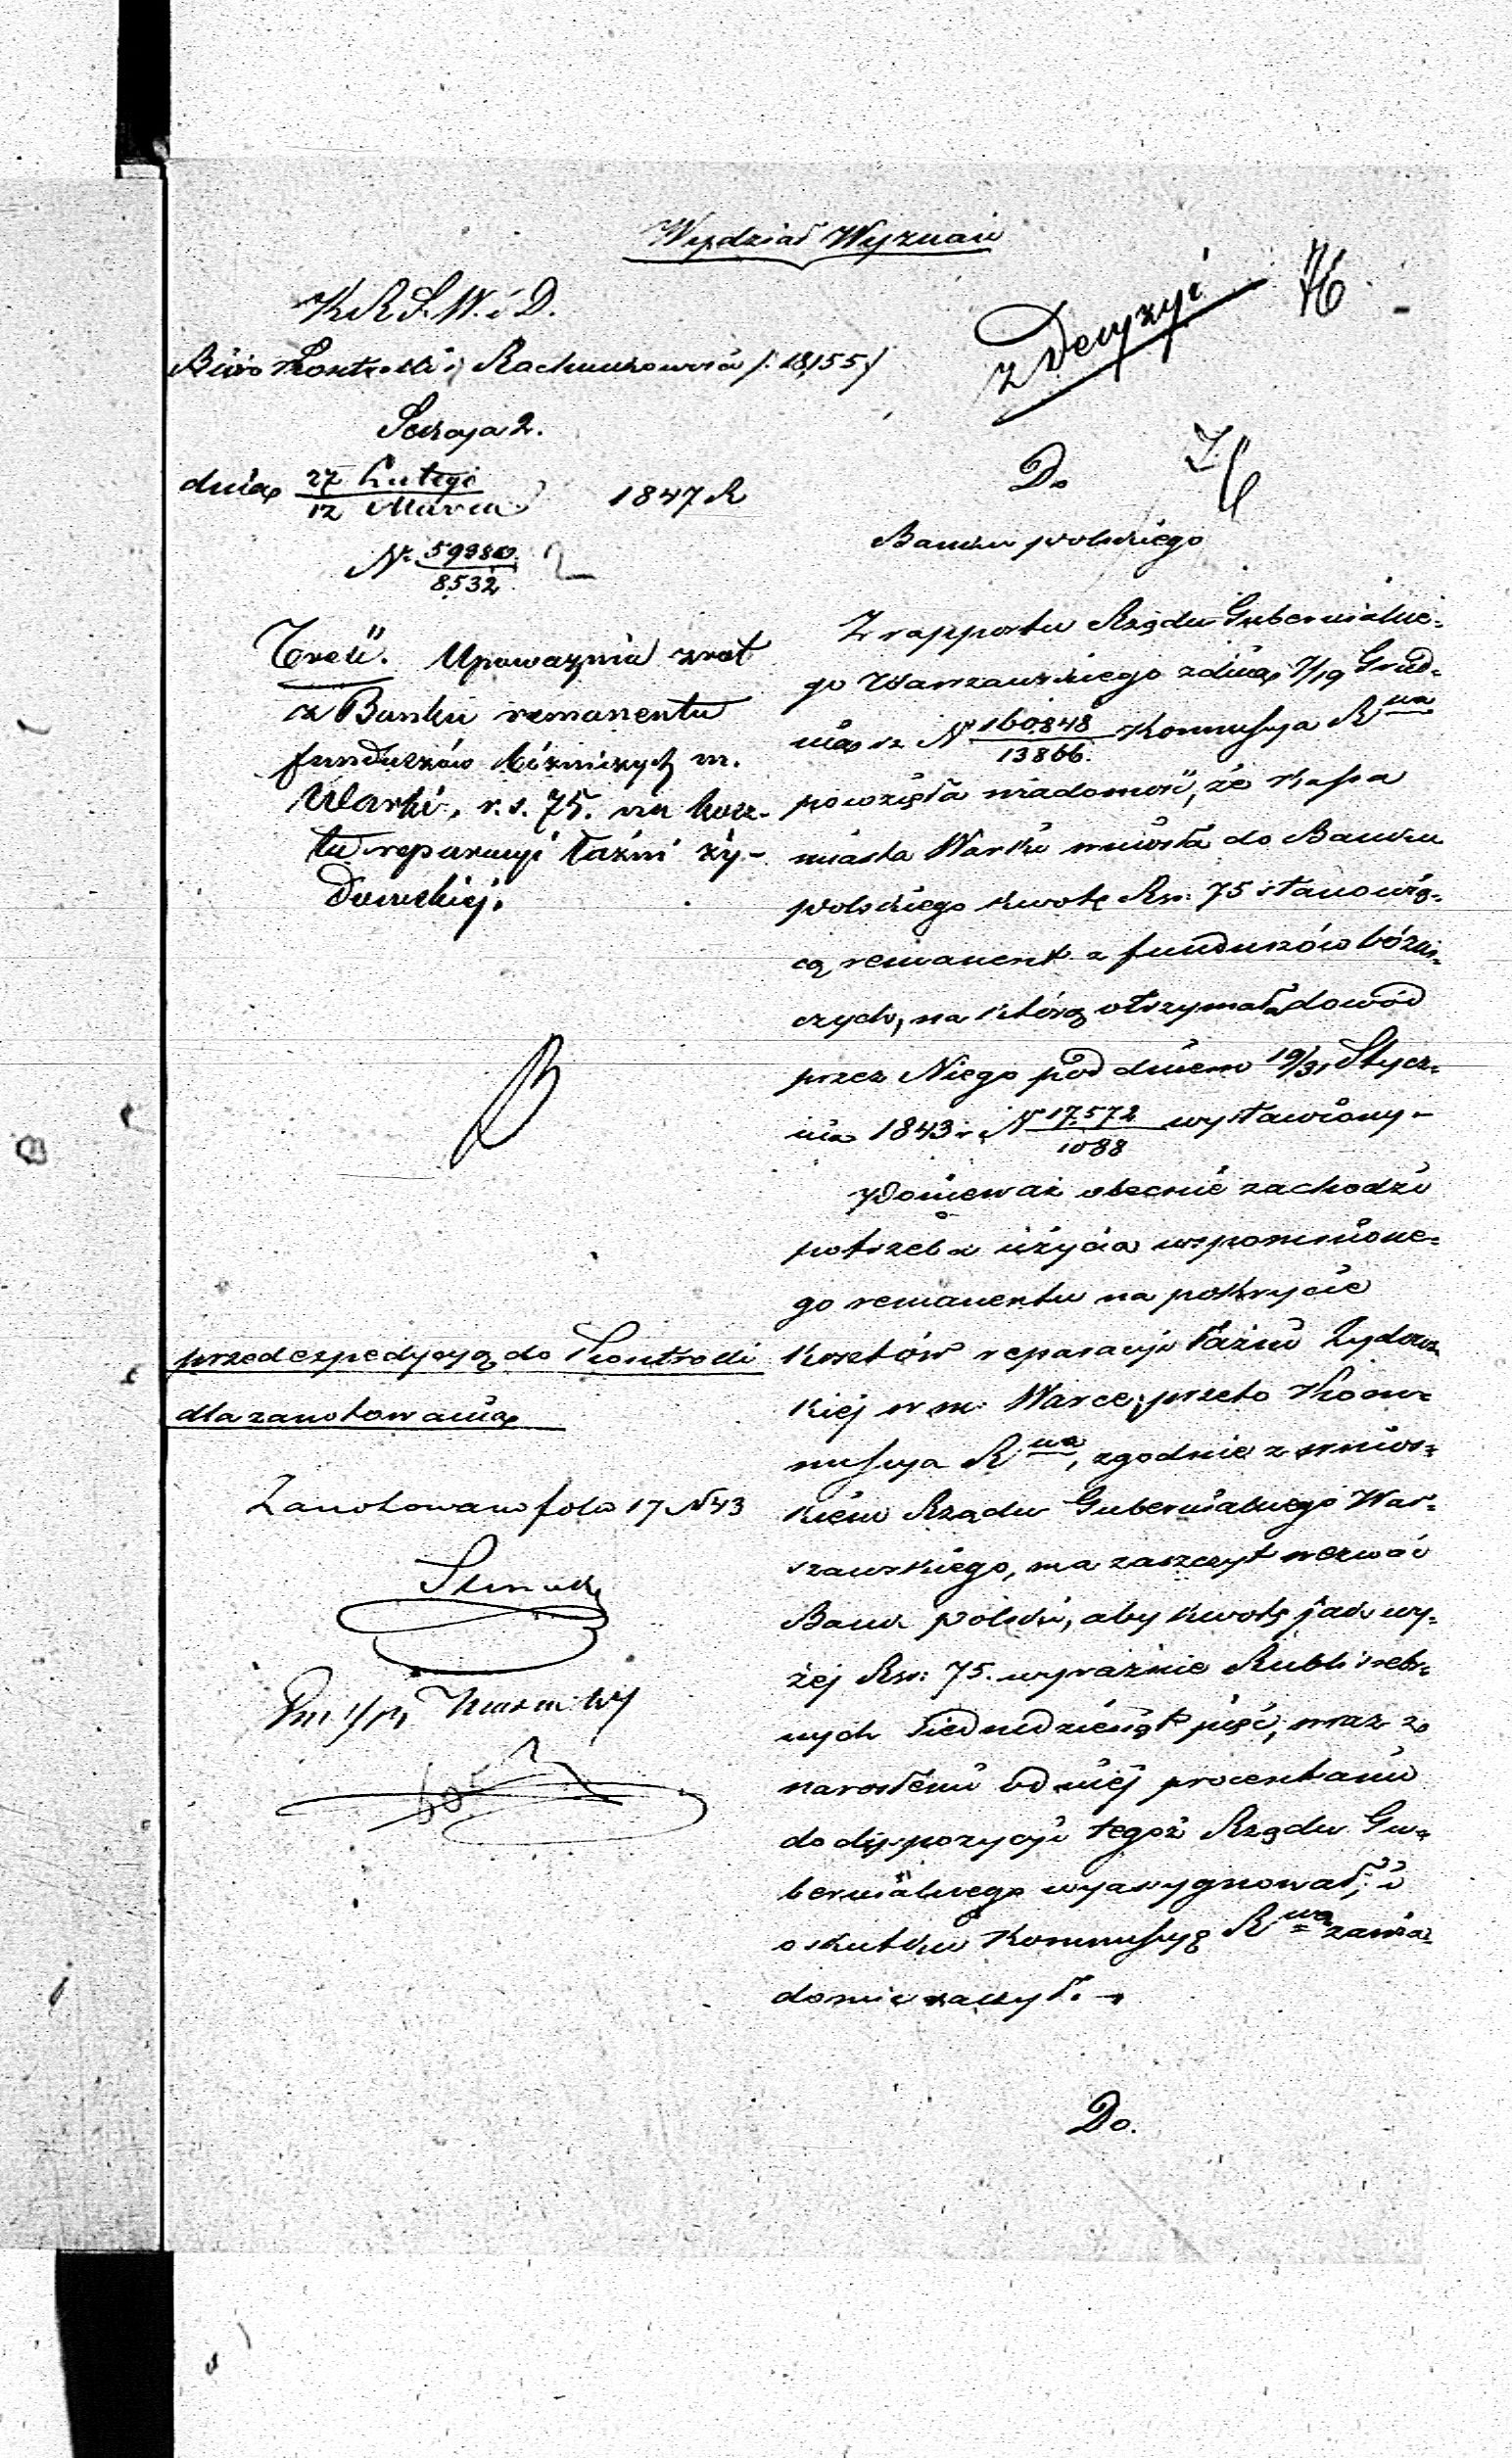 Wydział Wyznań
K R S. W. i D.
Biuro Kontrolli i Rachunkowości /: 18,155 /
Sekcya 2.
dnia 27 Lutego / 12 Marca 1847 R
N. 59980 / 8532
Treść. Upoważnia zwrot
z Banku remanentu
funduszów bóżniczych m.
Warki, r.s. 75. na kosz-
ta reparacyi łaźni ży-
dowskiej.
przed expedycyą do Kontrolli
dla zanotowania
Zanotowano folo 17 N 43
z Decyzyi
Do
Banku polskiego
Z rapportu Rządu Gubernialne-
go Warszawskiego z dnia 7/19 Grud-
nia r. z. N 160848 / 13866. Kommissya R wa
powzięła wiadomość, że Kassa
miasta Warki wniosła do Banku
polskiego kwotę Rsr. 75 stanowią-
cą remanent z funduszów bóżni-
czych, na którą otrzymała dowód
przez Niego pod dniem 19/31 Stycz-
nia 1843 r. N 17,572 / 1088 wystawiony.-
Ponieważ obecnie zachodzi
potrzeba użycia wspomnione-
go remanentu na pokrycie
kosztów reparacyi łaźni Żydows-
kiej w m. Warce, przeto Kom-
missya R wa, zgodnie z wnios-
kiem Rządu Gubernialnego War-
szawskiego, ma zaszczyt wezwać
Bank polski, aby kwotę jak wy-
żej Rsr. 75. wyraźnie Rubli srebr-
nych siedmdziesiąt pięć, wraz z
narosłemi od niej procentami
do dyspozycyi tegoż Rządu Gu-
bernialnego wyasygnował, i
o skutku Kommissyę R wą zawia-
domić raczył. -
Do.